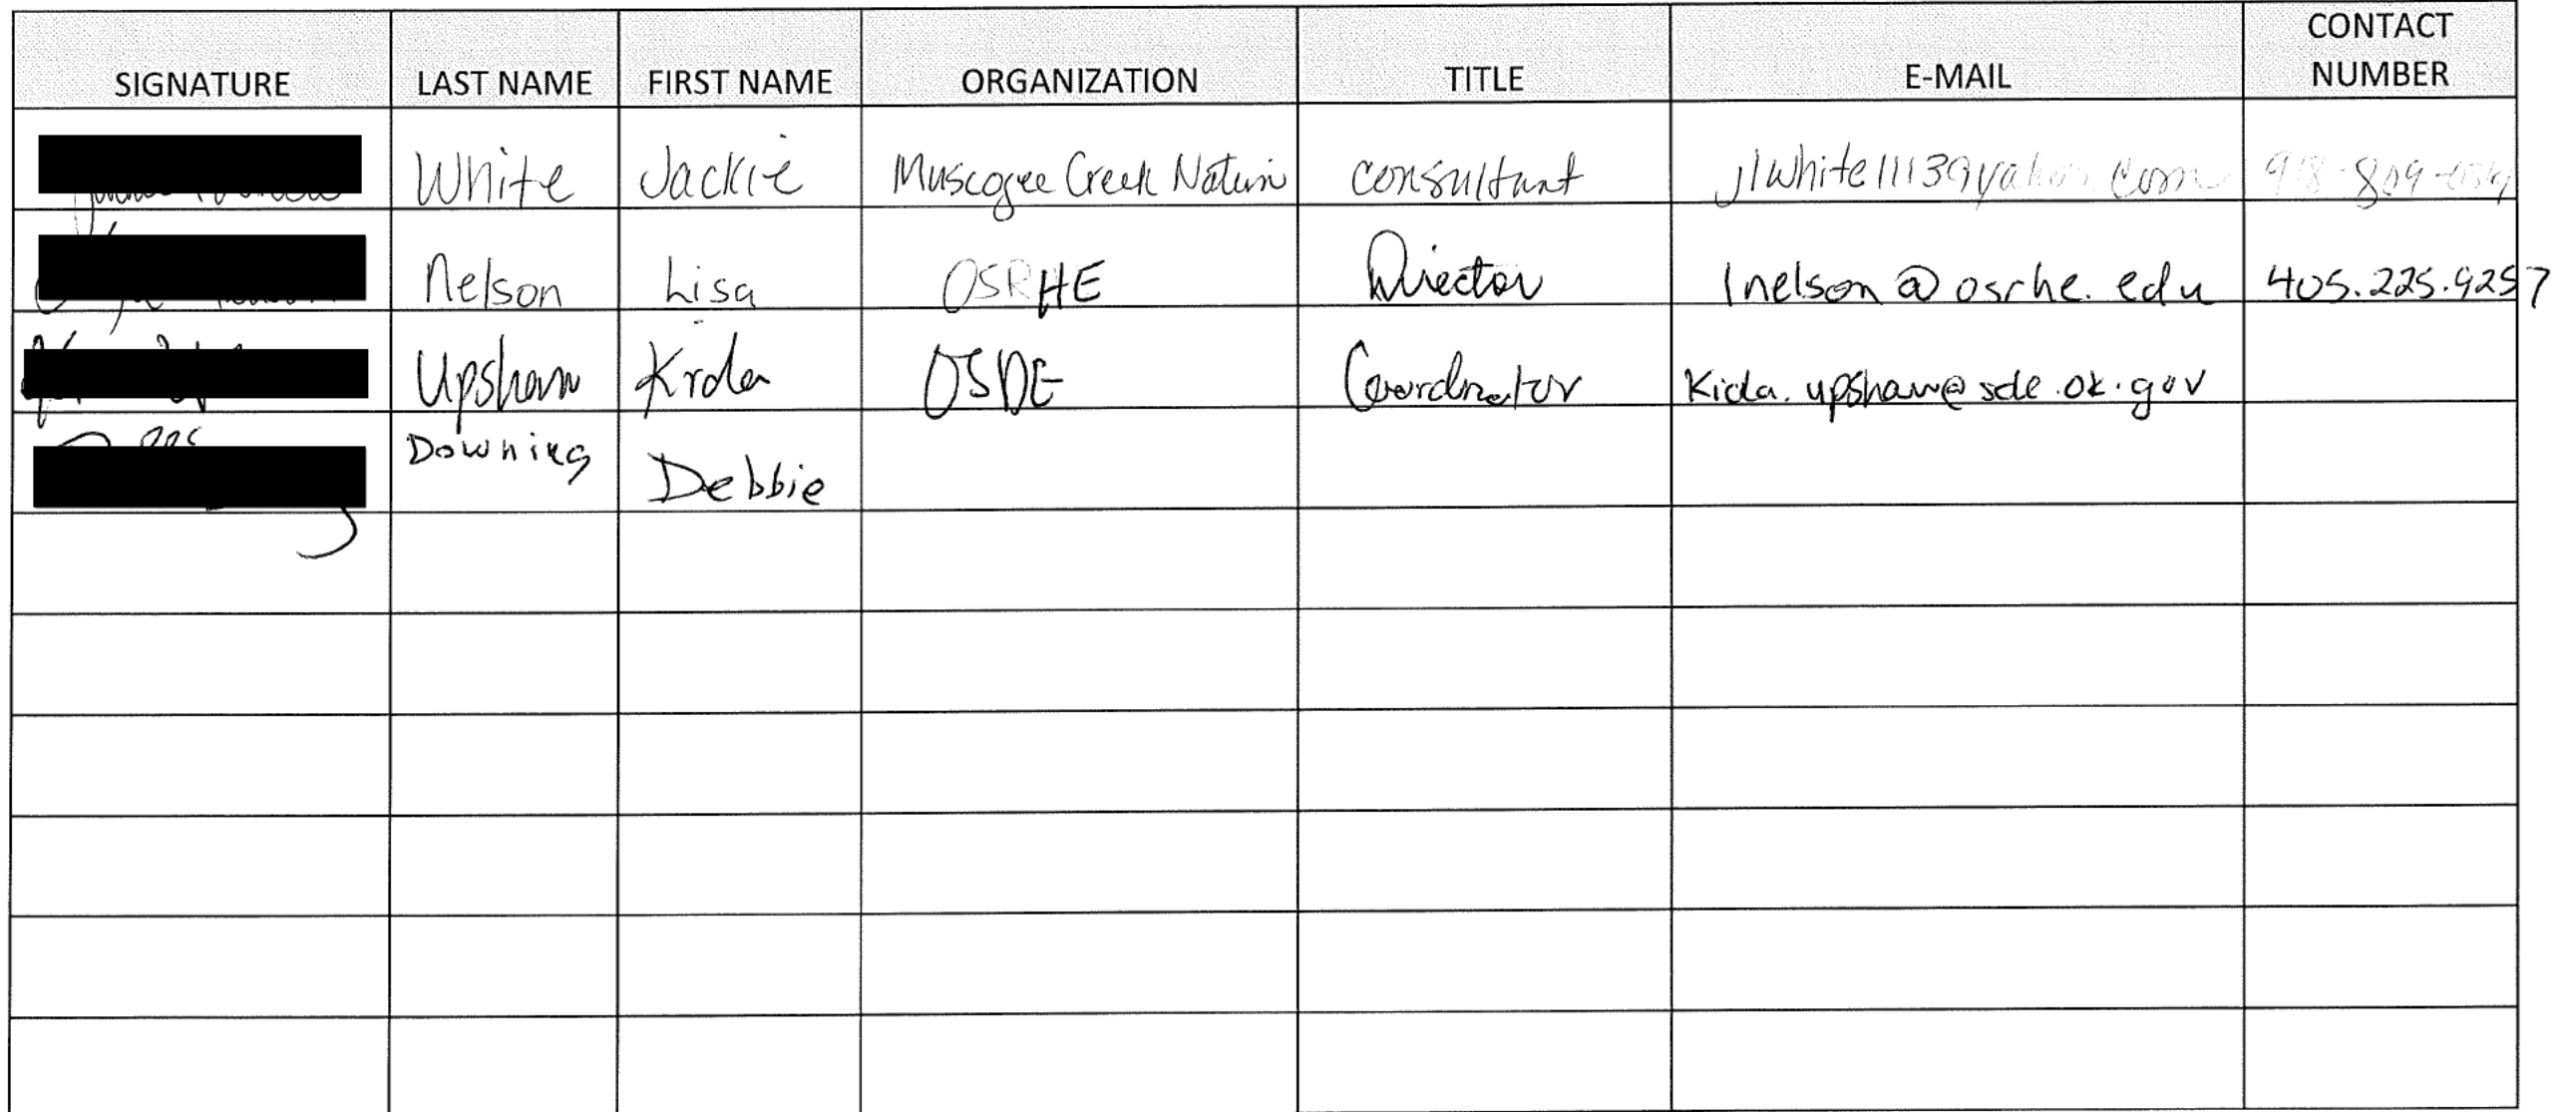 SIGNATURE LAST NAME FIRST NAME ORGANIZATION TITLE E-MAIL CONTACT NUMBER
White Jackie Muscogee Creek Nation consultant 918-809-
Nelson Lisa OSRHE Director lnelson@osrhe.edu 405.225.9257
Upshaw Kida OSDE Coordinator Kida.upshaw@sde.ok.gov
Downing Debbie